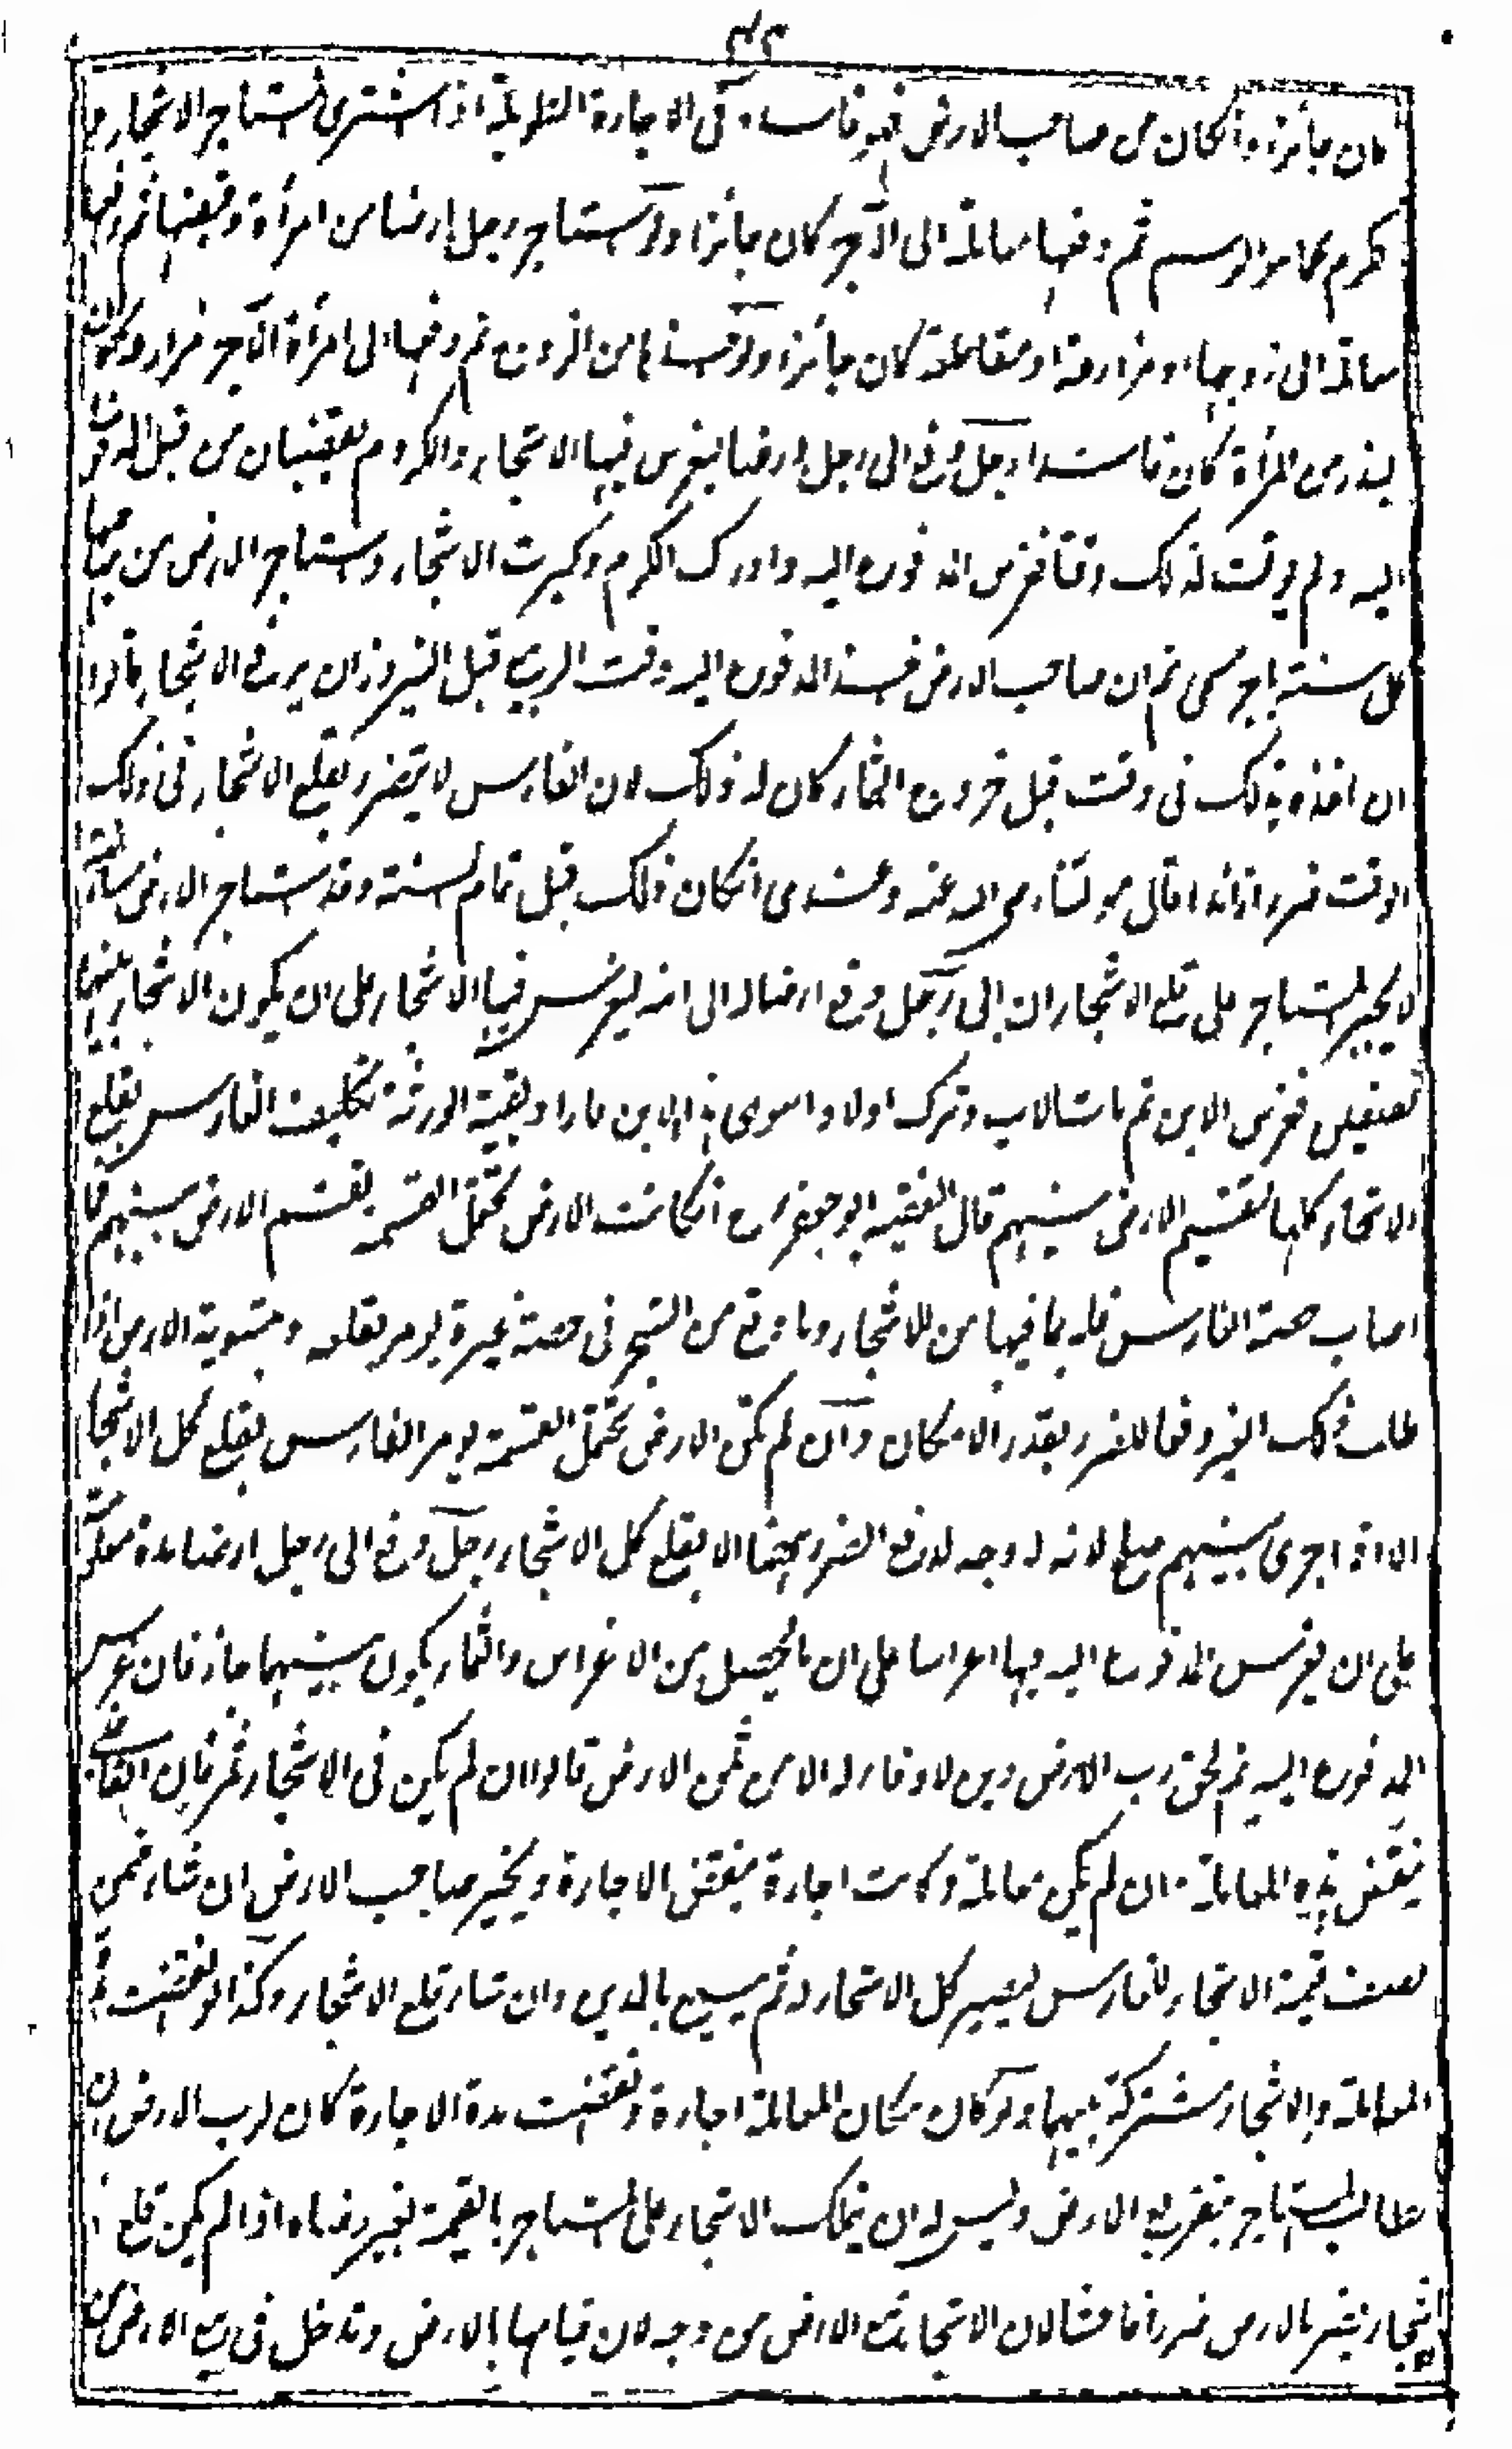 كان جائزا وان كان من صاحب الارض فهو فاسد وفى الاجارة الطويلة اذا اشترى المستاجر الاشجار و
الكرم كما هو الرسم ثم دفعها معاملة الى الآجر كان جائزا ولو استاجر رجل ارضا من امرأة وقبضها ثم دفعها
معاملة الى زوجها او مزارعة او مقاطعة كان جائزا ولو اخذها من الزوج ثم دفعها الى امرأة الآجر مزارعة
البذر من المرأة كان فاسدا رجل دفع الى رجل ارضا ليغرس فيها الاشجار والكروم بقضبان من قبل المدفوع
اليه ولم يوقت لذلك وقتا فغرس المدفوع اليه وادرك الكرم وكبرت الاشجار واستاجر الارض من صاحبها
كل سنة باجر مسمى ثم ان صاحب الارض اخذ المدفوع اليه وقت الربيع قبل النيروز ان يرفع الاشجار قالوا
ان اخذه بذلك فى وقت قبل خروج الثمار كان له ذلك لان الغارس لا يتضرر بقلع الاشجار فى ذلك
الوقت ضررا زائدا قال مولانا رضى الله عنه وعندى ان كان ذلك قبل تمام السنة وقد استاجر الارض مسانهة
لا يجبر المستاجر على قلع الاشجار ان ابى رجل دفع ارضا له الى ابنه ليغرس فيها الاشجار على ان يكون الاشجار بينهما
نصفين فغرس الابن ثم مات الاب وترك اولادا سوى هذا الابن فارادوا بقية الورثة تكليف الغارس بقلع
الاشجار كلها لتقسيم الارض بينهم قال الفقيه ابو جعفر رح ان كانت الارض تحتمل القسمة يقسم الارض بينهم فما
اصاب حصة الغارس فله بما فيها من الاشجار وما وقع من الشجر فى حصة غيره يومر بقلعه وبتسوية الارض اذا
طلب ذلك الغير دفعا للضرر بقدر الامكان وان لم تكن الارض تحتمل القسمة يومر الغارس بقلع كل الاشجار
الا اذا جرى بينهم صلح لانه لا وجه لدفع الضرر ههنا الا بقلع كل الاشجار رجل دفع الى رجل ارضا مدة معلومة
على ان يغرس المدفوع اليه فيها اغراسا على ان ما يحصل من الاغراس والثمار يكون بينهما جاز فان غرس
المدفوع اليه ثم لحق رب الارض دين لا وفاء له الا من ثمن الارض قالوا ان لم يكن فى الاشجار ثمر فان القاضى
ينقض هذه المعاملة وان لم يكن معاملة وكانت اجارة ينقض الاجارة ويخير صاحب الارض ان شاء ضمن
نصف قيمة الاشجار للغارس ليصير كل الاشجار له ثم يبيع بالدين وان شاء قلع الاشجار وكذا لو انقضت مدة
المعاملة والاشجار مشتركة بينهما ولو كان مكان المعاملة اجارة وانقضت مدة الاجارة كان لرب الارض ان
يطالب المستاجر بتفريغ الارض وليس له ان يتملك الاشجار على المستاجر بالقيمة بغير رضاه اذا لم يكن قلع
الاشجار يضر بالارض ضررا فاحشا لان الاشجار تبع الارض من وجه لان قيامها بالارض وتدخل فى بيع الارض من